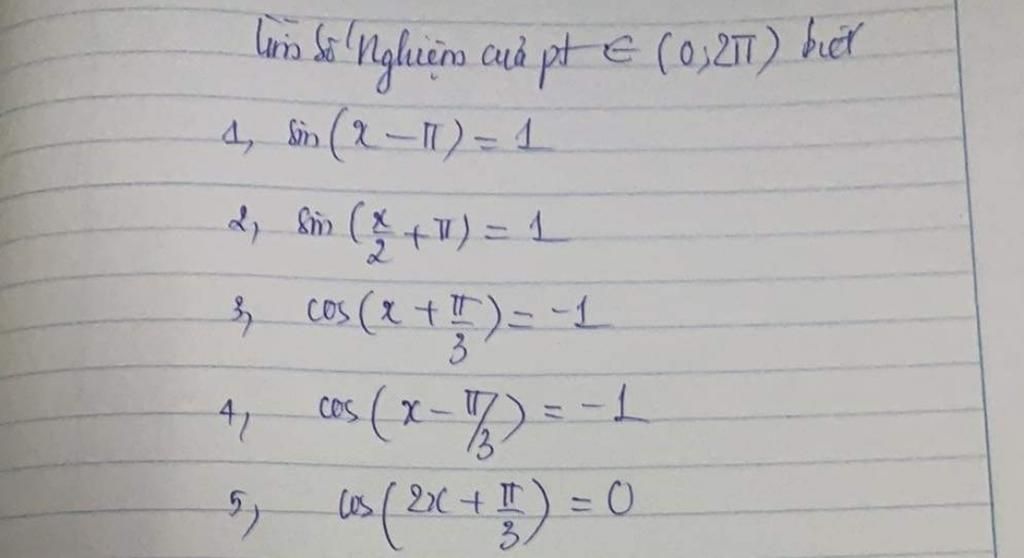 Tìm số Nghiệm của pt ∈ (0;2π) biết
1, sin(x − π) = 1
2, sin(x/2 + π) = 1
3, cos(x + π/3) = −1
4, cos(x − π/3) = −1
5, cos(2x + π/3) = 0